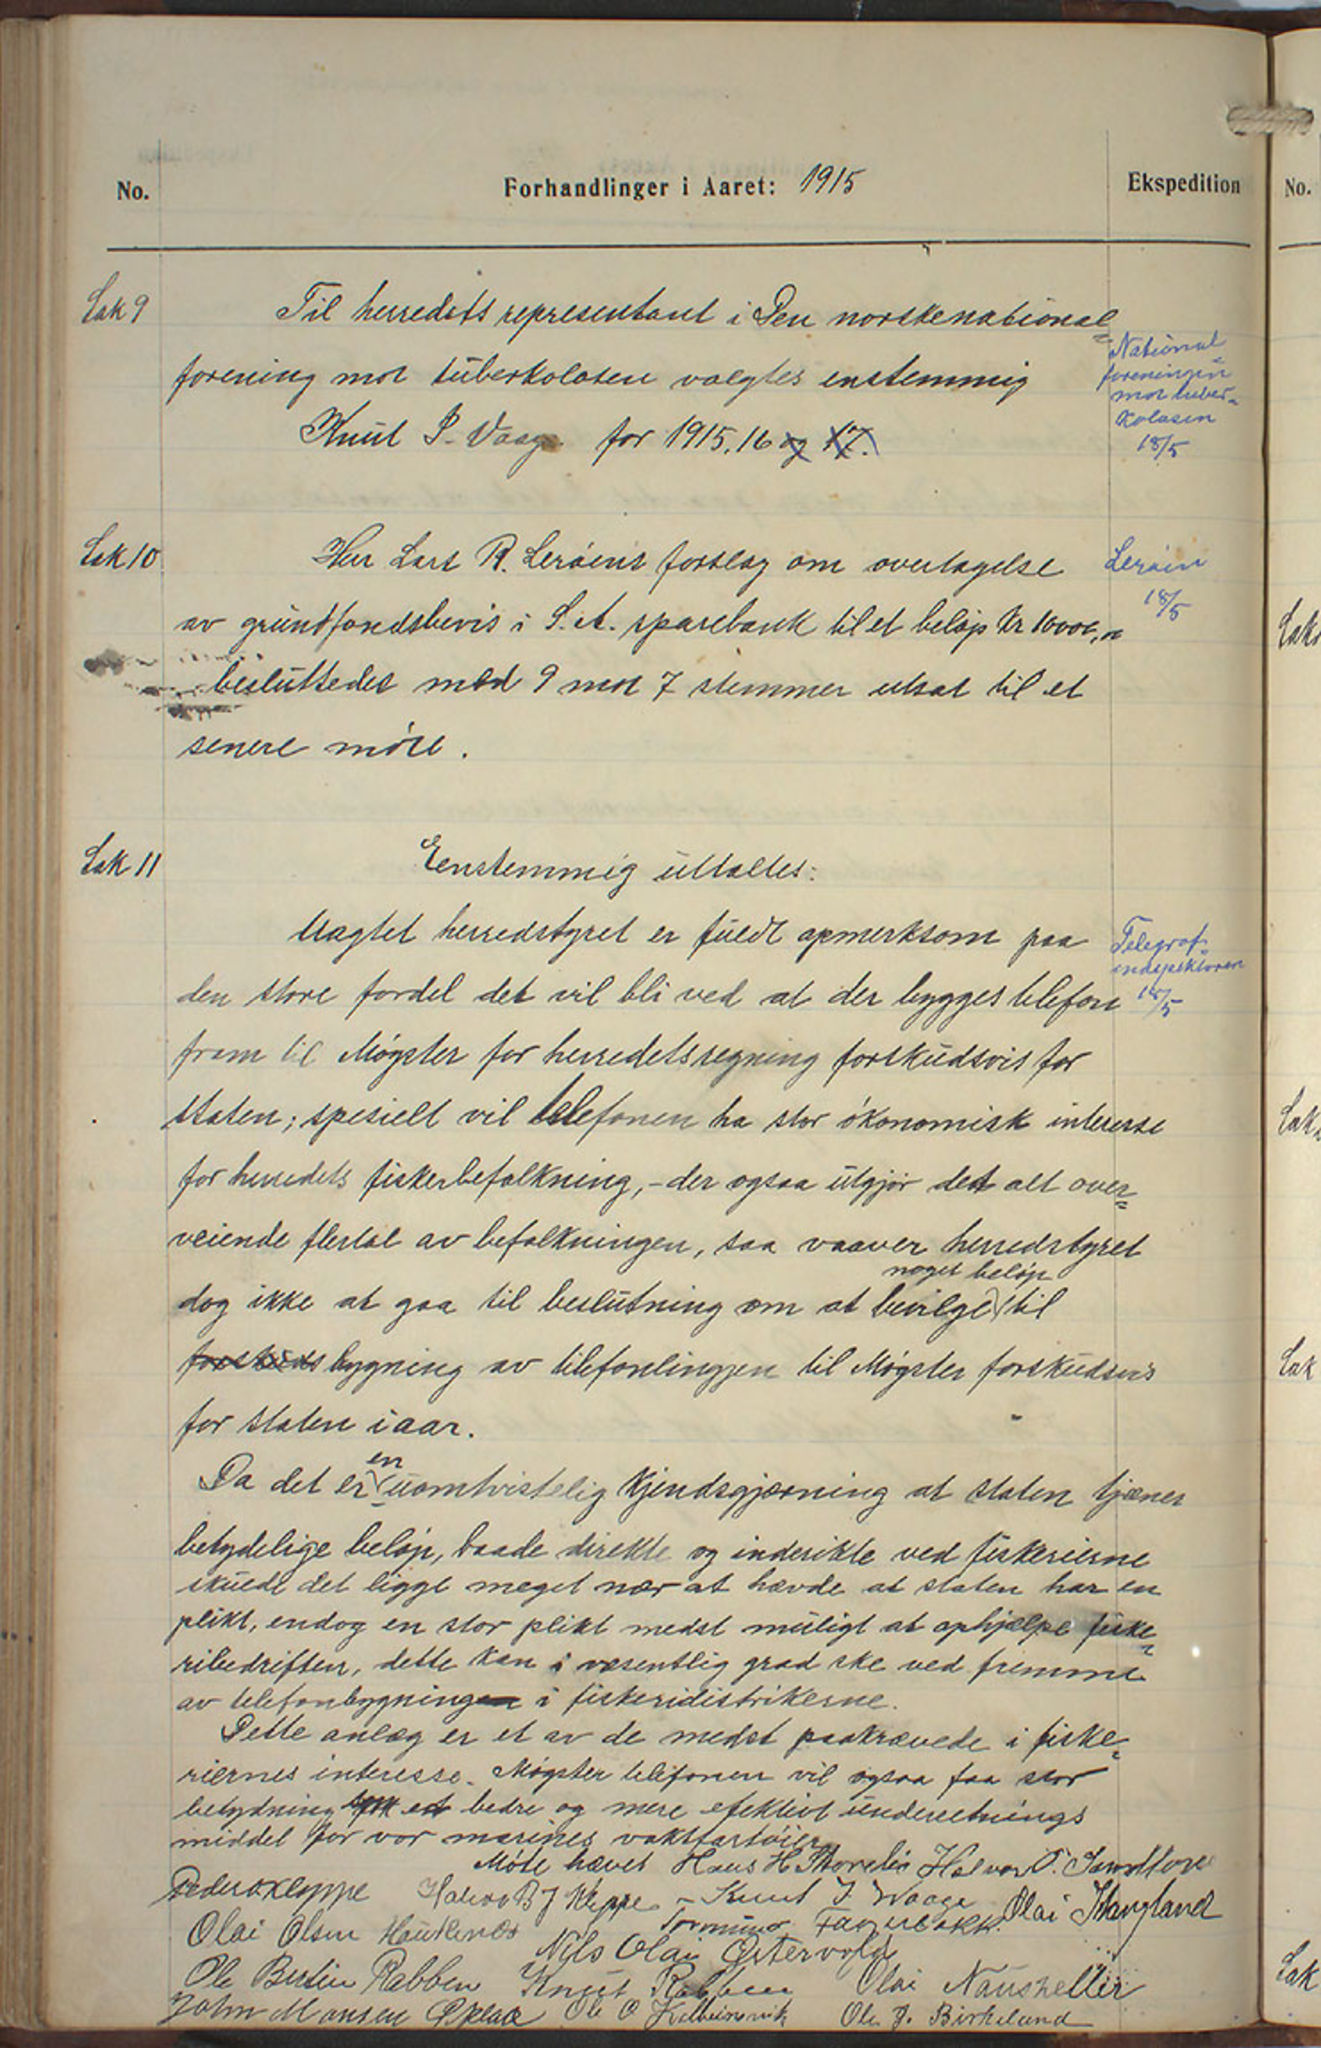 No.
Forhandlinger i Aaret: 1915
Ekspedition
No.
Sak 9
Til herredets representant i Den norske national=
forening mot tuberkolosen valgtes enstemmig
Knut P. Vaage for 1915, 16 og 17.
National=
foreningen
mot tuber=
kolosen
18/5
Sak 10
Herr Lars R. Lerøens forslag om overtagelse
av grundfondsbevis i S. A. sparebank til et beløp kr 10000,00
besluttedes med 9 mot 7 stemmer utsat til et
senere møte.
Lerøen
18/5
Sak 11
Eenstemmig uttaltes:
Uagtet herredstyret er fuldt opmerksom paa
den store fordel det vil bli ved at der bygges telefon
fram til Møgster for herredets regning forskudsvis for
staten; spesielt vil telefonen ha stor økonomisk interesse
for herredets fiskerbefolkning, - der ogsaa utgjør det alt over=
veiende flertal av befolkningen, saa vaaver herredstyret
dog ikke at gaa til beslutning om at bevilge noget beløp til
forskuds bygning av telefonlingjen til Møgster forskudsvis
for staten i aar.
Telegraf=
indspektøren
18/5
Da det er en uomtvistelig kjendsgjærning at staten tjæner
betydelige beløp, baade direkte og inderikte ved fiskerierne
skulde det ligge meget nær at hævde at staten har en
plikt, endog en stor plikt medst muligt at ophjælpe fiske=
ribedriften, dette kan i væsentlig grad ske ved fremme
av telefonbygningen i fiskeridistrikerne.
Dette anlæg er et av de medst paakrævede i fiske=
riernes interesse. Møgster telefonen vil ogsaa faa stor
betydning som et bedre og mere efektivt underretnings
middel for vor marines vaktfartøier
Møte hævet Hans H Storebø Halvor O. Sandtorv
Peder O Kleppe Halvor B J Kleppe - Knut J. Waage Olai Stangland
Olai Olsen Haukenes Tormund Fagerbakk.
Nils Olai Østervold
Ole Bertin Rabben Knut Rabben Olai Naustheller
John Monsen Ole O Kolbeinsvik Ole J. Birkeland
Sak
Sak
Sak
Sak